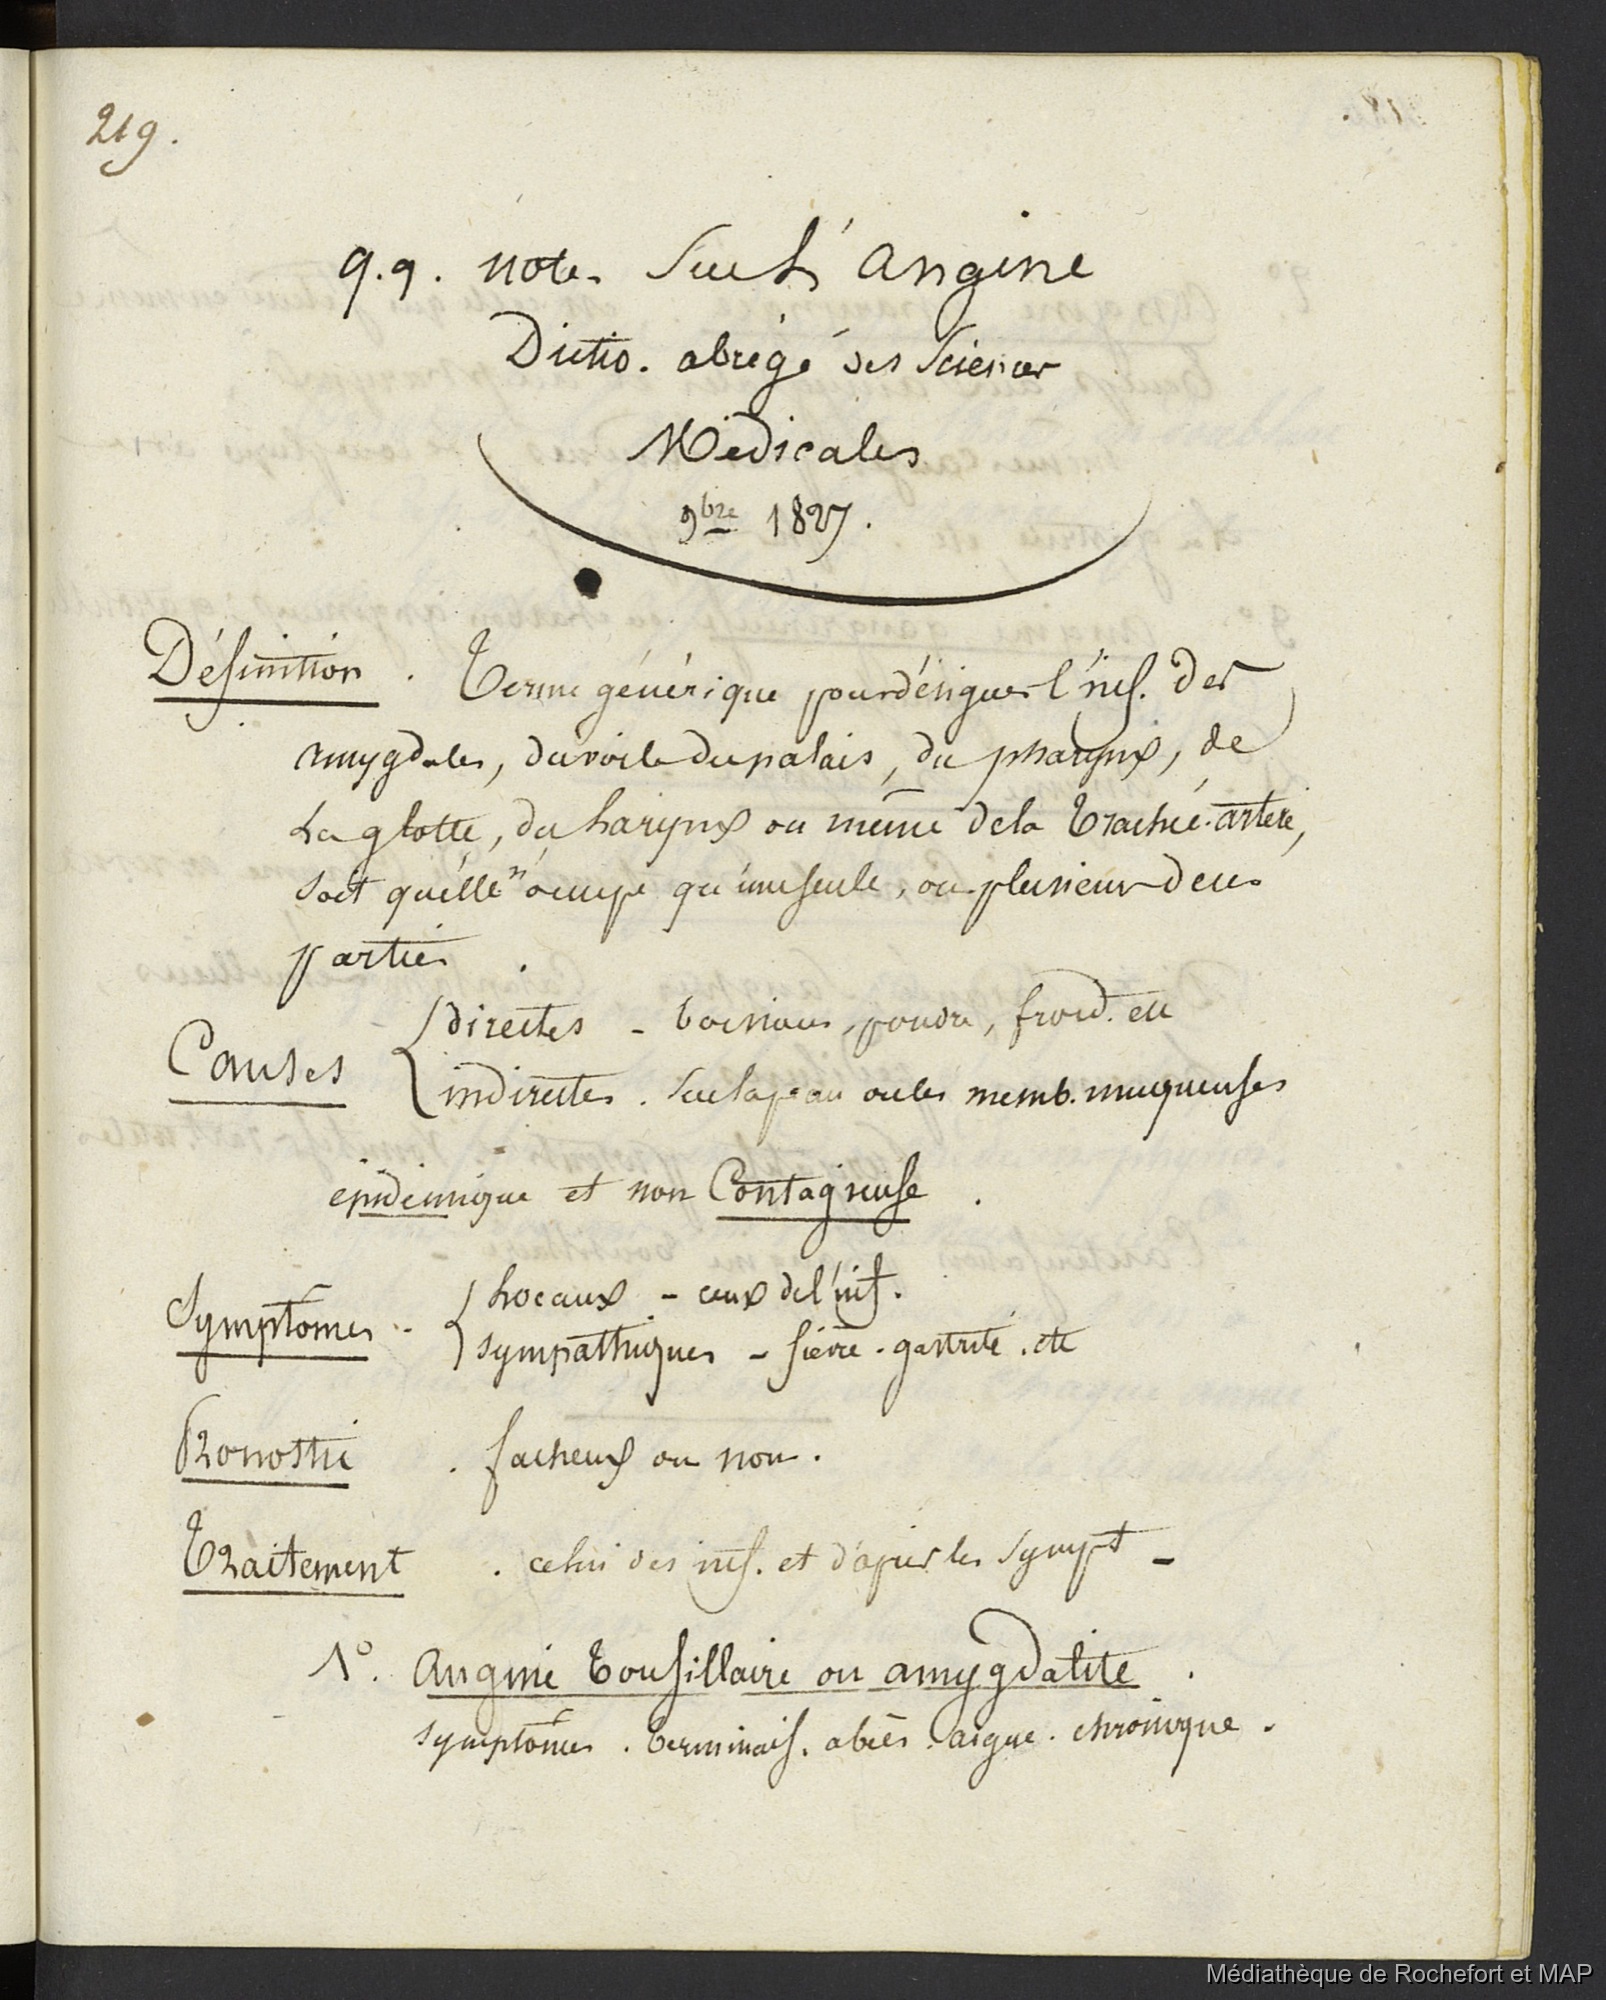 219.
q.q. notes sur L'angine
Dictio. abrégé des Sciences
Médicales
9bre 1827.
Définition . Terme générique pour désigner l'inf. des
amygdales, du voile du palais, du pharynx, de
La glotte, du Larynx ou même de la Trachée-artère,
soit qu'elle n'occupe qu'une seule, ou plusieurs de ces
parties .
Causes { directes - boissons, poudre, froid. etc
indirectes . sur la peau ou les memb. muqueuses
épidémique et non Contagieuse .
Symptômes . { Locaux - ceux de l'inf.
sympathiques - fièvre . gastrite . etc
Pronostic . facheux ou non .
Traitement . celui des inf. et d'après les sympt -
1°. Angine tonsillaire ou amygdalite .
symptômes . terminais. abcès . aigue . chronique .
Médiathèque de Rochefort et MAP